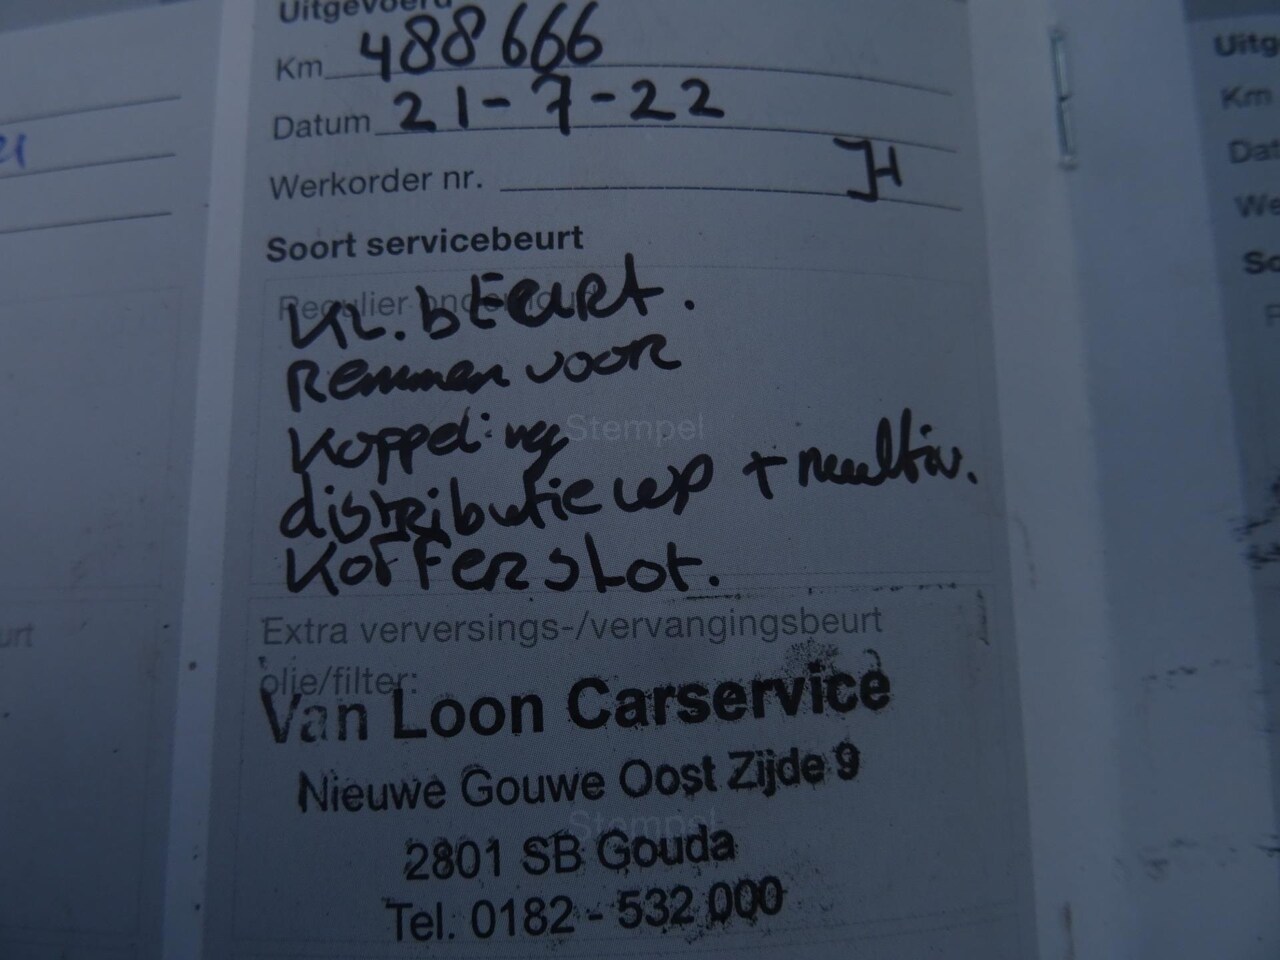 Uitgevoerd
Km 488666
Datum 21-7-22
Werkorder nr. JH
Soort servicebeurt
Regulier onderhoud
KL. bEURt.
Remmen voor
Stempel
Koppeling
distributie wp + multiv.
Kofferslot.
Extra verversings-/vervangingsbeurt
olie/filter:
Van Loon Carservice
Nieuwe Gouwe Oost Zijde 9
Stempel
2801 SB Gouda
Tel. 0182 - 532 000
21
urt
Uitg
Km
Dat
We
So